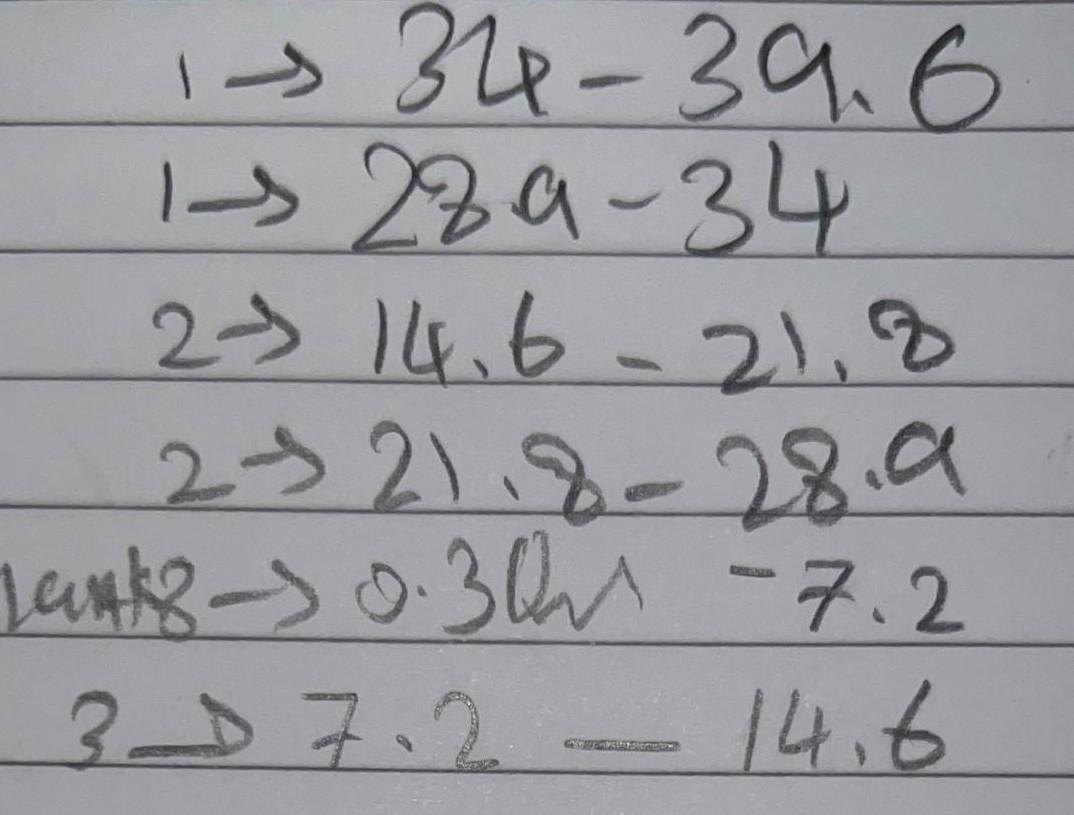 1 → 34 - 39.6
1 → 28.9 - 34
2 → 14.6 - 21.8
2 → 21.8 - 28.9
→ 0.3 - 7.2
3 → 7.2 - 14.6